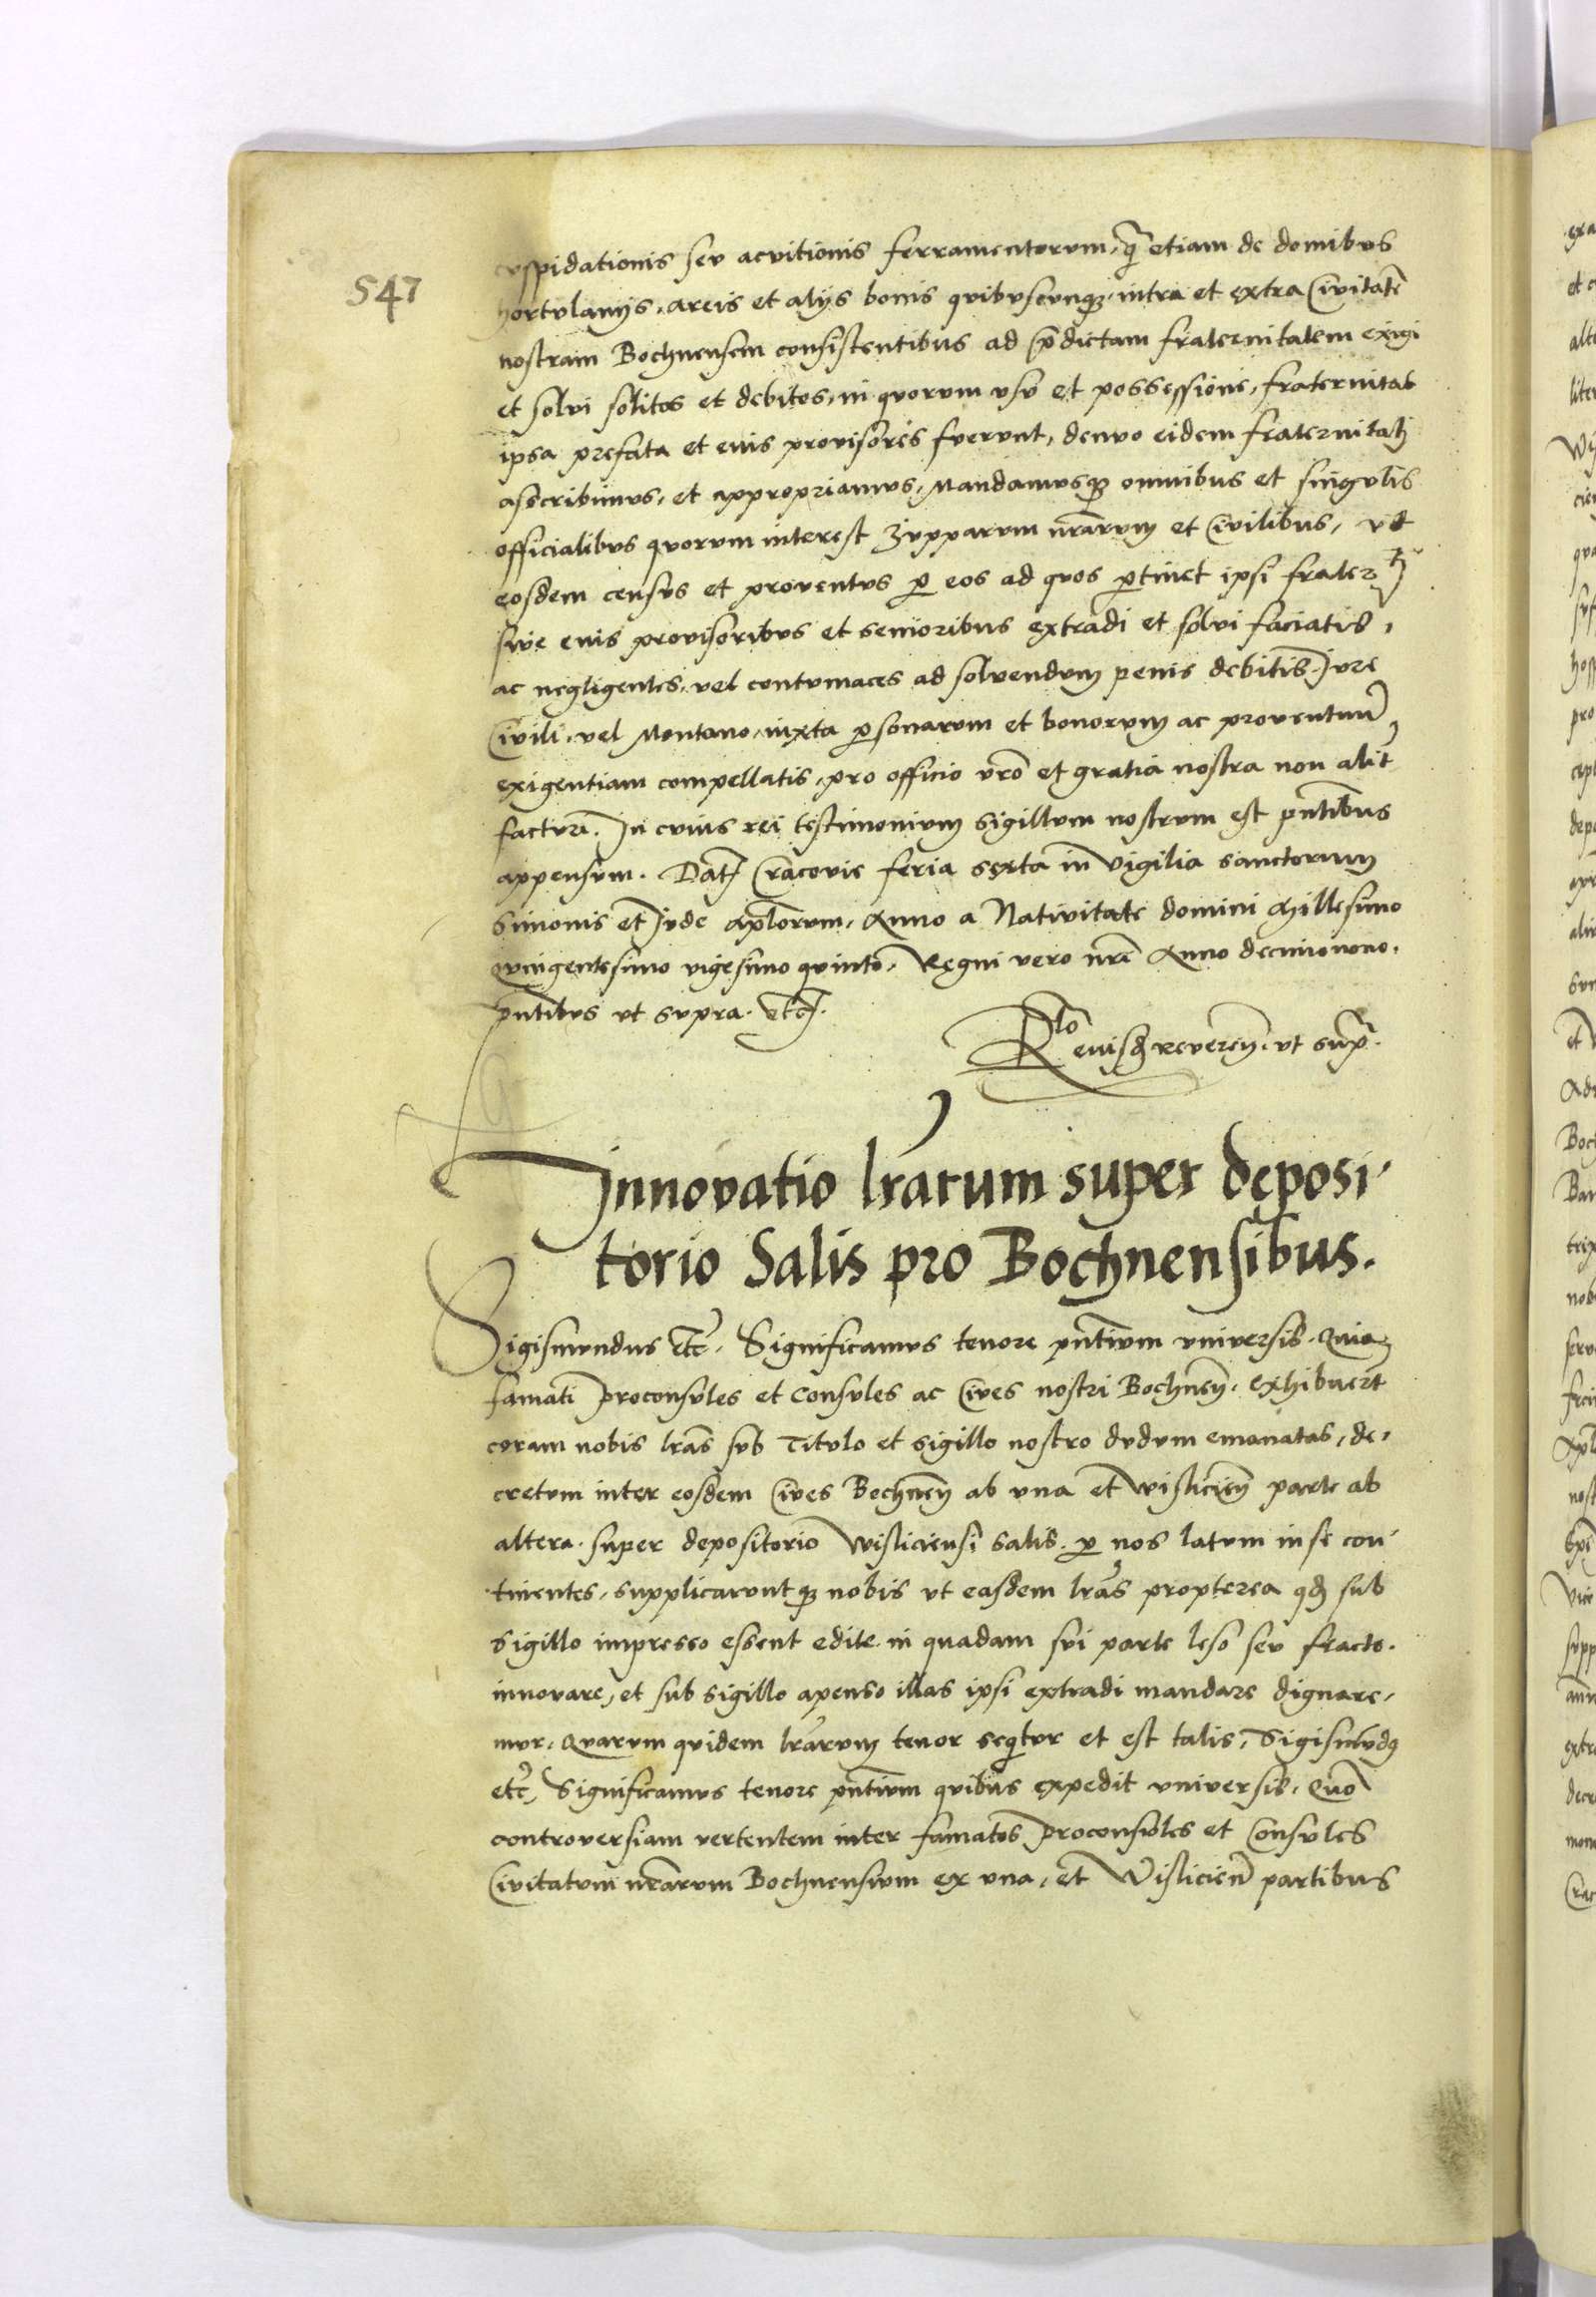 547
cuspidationis seu acuitionis ferramentorum, q̃ etiam de domibus
hortulanijs, areis et alijs bonis quibuscunqz, intra et extra Ciuitatẽ
nostram Bochnensem consistentibus ad p̃dictam fraternitatem exigi
et solui solitos et debitos, in quorum usu et possessione, fraternitas
ipsa prefata et euis prouisores fuerunt, denuo eidem fraternitatj
ascribimus, et appropriamus, Mandamusqz omnibus et singulis
officialibus quorum interest Zupparum nrãrum et Ciuilibus, ut
eosdem census et prouentus p eos ad quos ptinet ipsi frater tj
siue euis prouisoribus et senioribus extradi et solui faciatis,
ac negligentes, uel contumaces ad soluendum penis debitis Jure
Ciuili, uel Montano, iuxta psonarum et bonorum ac prouentuũ
exigentiam compellatis, pro officio vrõ et gratia nostra non alit̃
facturi. In cuius rei testimonium sigillum nostrum est pñtibus
appensum. Dat Cracouie feria sexta in Vigilia sanctorum
Simonis et Jude apl̃orum, Anno a Natiuitate domini Millesimo
quingentesimo vigesimo quinto, Regni vero nrĩ Anno decimonono,
pñtibus ut supra. etc.
Rlo euisd reueren. ut sup̃.
Innovatio lrãrum super deposi-
torio Salis pro Bochnensibus.
Sigismundus etc̃. Significamus tenore pñtium uniuersis. Quia
famati proconsules et Consules ac Ciues nostri Bochneñ. exhibuerũt
coram nobis lrãs sub Titulo et sigillo nostro dudum emanatas, de-
cretum inter eosdem Ciues Bochneñ ab una et Wislicieñ parte ab
altera. super depositorio Wisliciensi salis. p nos latum in se con-
tinentes, supplicaruntqz nobis ut easdem lrãs propterea qd sub
sigillo impresso essent edite. in quadam sui parte leso seu fracto.
innouare, et sub sigillo apenso illas ipsi extradi mandare dignare-
mur. Quarum quidem lrãrum tenor seqtur et est talis, Sigismũdus
etc̃, Significamus tenore pñtium quibus expedit uniuersis. Quõ
controuersiam uertentem inter famatos proconsules et Consules
Ciuitatum nrãrum Bochnensium ex una, et Wislicieñ partibus